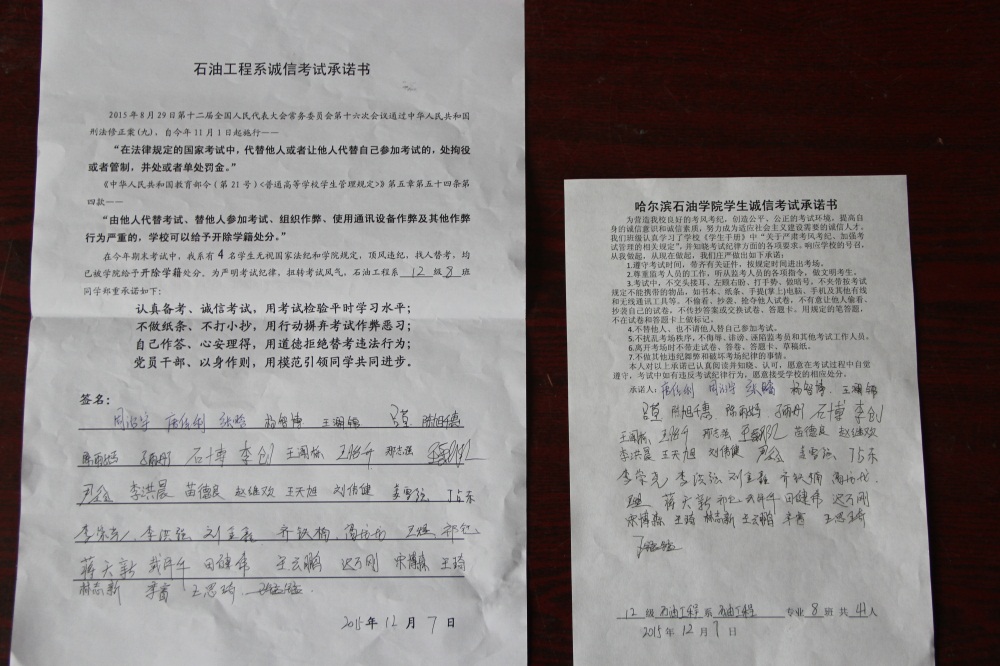 石油工程系诚信考试承诺书
2015年8月29日第十二届全国人民代表大会常务委员会第十六次会议通过中华人民共和国
刑法修正案(九)，自今年11月1日起施行——
“在法律规定的国家考试中，代替他人或者让他人代替自己参加考试的，处拘役
或者管制，并处或者单处罚金。”
《中华人民共和国教育部令(第21号)<普通高等学校学生管理规定>》第五章第五十四条第
四款——
“由他人代替考试、替他人参加考试、组织作弊、使用通讯设备作弊及其他作弊
行为严重的，学校可以给予开除学籍处分。”
在今年期末考试中，我系有4名学生无视国家法纪和学院规定，顶风违纪，找人替考，均
已被学院给予开除学籍处分。为严明考试纪律，扭转考试风气，石油工程系 12 级 8 班
同学郑重承诺如下：
认真备考、诚信考试，用考试检验平时学习水平；
不做纸条、不打小抄，用行动摒弃考试作弊恶习；
自己作答、心安理得，用道德拒绝替考违法行为；
党员干部、以身作则，用模范引领同学共同进步。
签名：
石博 李创
李洪晨 苗德良 赵继欢 王天旭 刘倩健
蒋天新 田健伟 王云鹏 迟万刚 宋博森 王琦
林志新 王思琦
2015年 12 月 7 日
哈尔滨石油学院学生诚信考试承诺书
为营造我校良好的考风考纪，创造公平、公正的考试环境，提高自
身的诚信意识和诚信素质，努力成为适应社会主义建设需要的诚信人才，
我们班级认真学习了学校《学生手册》中“关于严肃考风考纪，加强考
试管理的相关规定”，并知晓考试纪律方面的各项要求。响应学校的号召，
从我做起，从现在做起，我们庄严做出如下承诺：
1.遵守考试时间，带齐有关证件，按规定时间进出考场。
2.尊重监考人员的工作，听从监考人员的各项指令，做文明考生。
3.考试中，不交头接耳、左顾右盼、打手势、做暗号，不夹带按考试
规定不能携带的物品，如书本、纸条、手提(掌上)电脑、手机及其他有线
和无线通讯工具等。不偷看、抄袭、抢夺他人试卷，不有意让他人偷看、
抄袭自己的试卷，不传抄答案或交换试卷、答题卡。用规定的笔答题，
不在试卷和答题卡上做标记。
4.不替他人、也不请他人替自己参加考试。
5.不扰乱考场秩序，不侮辱、诽谤、诬陷监考员和其他考试工作人员。
6.离开考场时不带走试卷、答卷、答题卡、草稿纸。
7.不做其他违纪舞弊和破坏考场纪律的事情。
本人对以上承诺已认真阅读并知晓、认可，愿意在考试过程中自觉
遵守，考试中如有违反考试纪律行为，愿意接受学校的相应处分。
承诺人：
石博 李创
苗德良 赵继欢
李洪晨 王天旭 刘倩健
蒋天新 田健伟 迟万刚
宋博森 王琦 林志新 王云鹏 王思琦
12 级 石油工程 系 石油工程 专业 8 班 共 41 人
2015 年 12 月 7 日